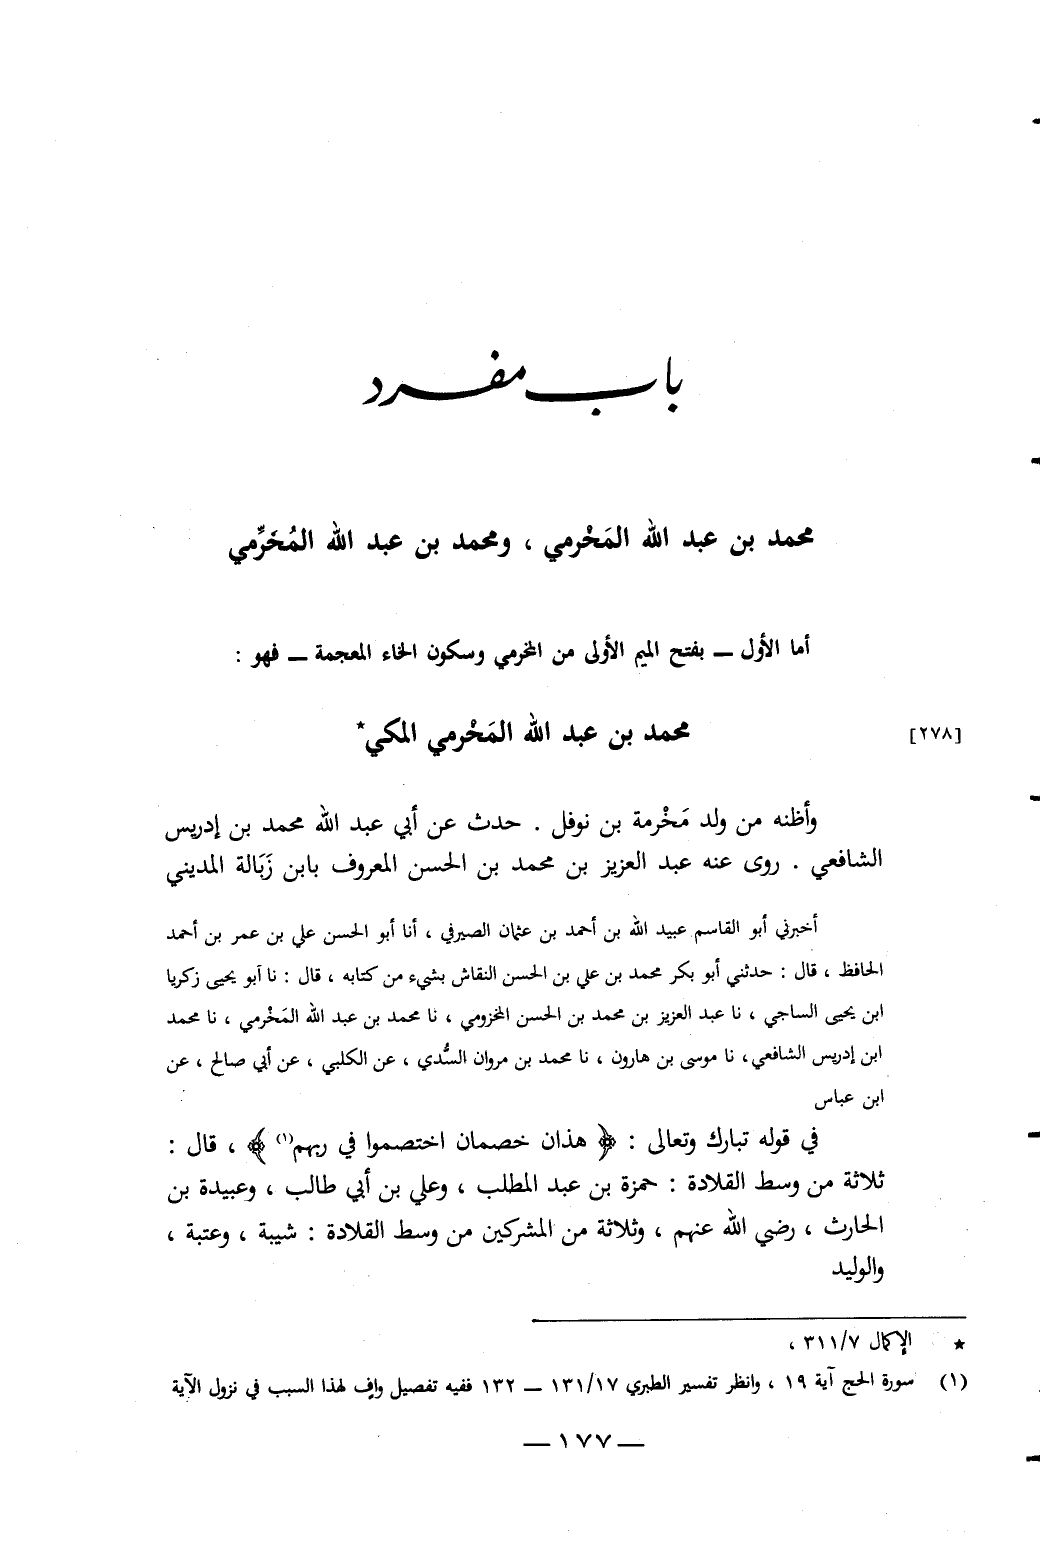 باب مفرد
محمد بن عبد الله المَخْرمي ، ومحمد بن عبد الله المُخَرِّمي
أما الأول ــ بفتح الميم الأولى من المخرمي وسكون الخاء المعجمة ــ فهو :
[٢٧٨] محمد بن عبد الله المَخْرمي المكي*
وأظنه من ولد مَخْرمة بن نوفل . حدث عن أبي عبد الله محمد بن إدريس
الشافعي . روى عنه عبد العزيز بن محمد بن الحسن المعروف بابن زَبَالة المديني
أخبرني أبو القاسم عبيد الله بن أحمد بن عثمان الصيرفي ، أنا أبو الحسن علي بن عمر بن أحمد
الحافظ ، قال : حدثني أبو بكر محمد بن علي بن الحسن النقاش بشيء من كتابه ، قال : نا أبو يحيى زكريا
ابن يحيى الساجي ، نا عبد العزيز بن محمد بن الحسن المخزومي ، نا محمد بن عبد الله المَخْرمي ، نا محمد
ابن إدريس الشافعي، نا موسى بن هارون ، نا محمد بن مروان السُّدي ، عن الكلبي ، عن أبي صالح ، عن
ابن عباس
في قوله تبارك وتعالى : ﴿ هذان خصمان اختصموا في ربهم(١) ﴾ ، قال :
ثلاثة من وسط القلادة : حمزة بن عبد المطلب ، وعلي بن أبي طالب ، وعبيدة بن
الحارث ، رضي الله عنهم ، وثلاثة من المشركين من وسط القلادة : شيبة ، وعتبة ،
والوليد
* الإكمال ٣١١/٧ ،
(١) سورة الحج آية ١٩ ، وانظر تفسير الطبري ١٣١/١٧ ــ ١٣٢ ففيه تفصيل وافٍ لهذا السبب في نزول الآية
ــ ١٧٧ ــ